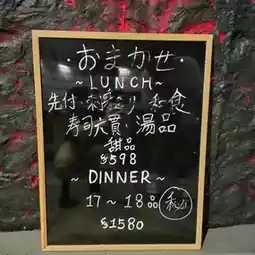 ·おまかせ·
~LUNCH~
先付·刺身·和食
寿司六貫·湯品
甜品
$598
~DINNER~
17~18品
$1580